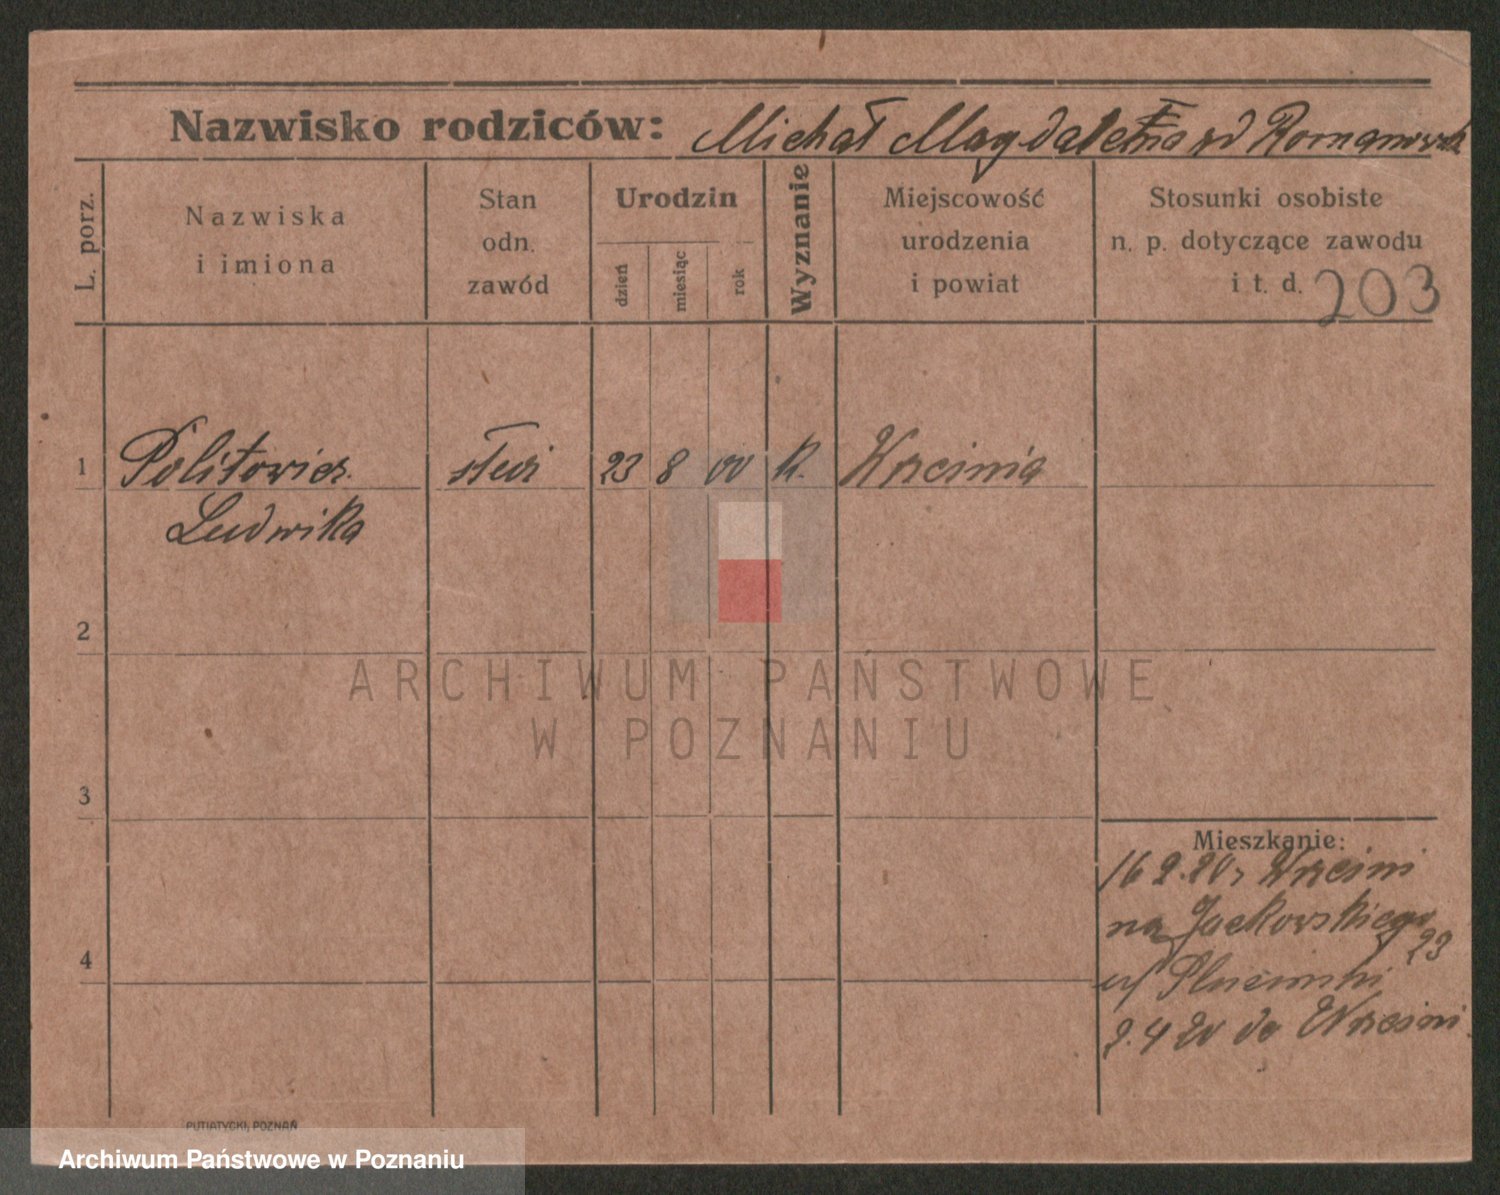 Nazwisko rodziców: Michał Magdalena zd Romanowsk
L. porz.
Nazwiska
i imiona
Stan
odn.
zawód
Urodzin
dzień
miesiąc
rok
Wyznanie
Miejscowość
urodzenia
i powiat
Stosunki osobiste
n. p. dotyczące zawodu
i t. d. 203
1 Politowicz 23 8 00 K. Września
Ludwika
2
ARCHIWUM PAŃSTWOWE
W POZNANIU
3
Mieszkanie:
16 2.20 z Wrześni
na Jackowskiego
23
4
2.4 20 do Wrześni
PUTIATYCKI, POZNAŃ
Archiwum Państwowe w Poznaniu